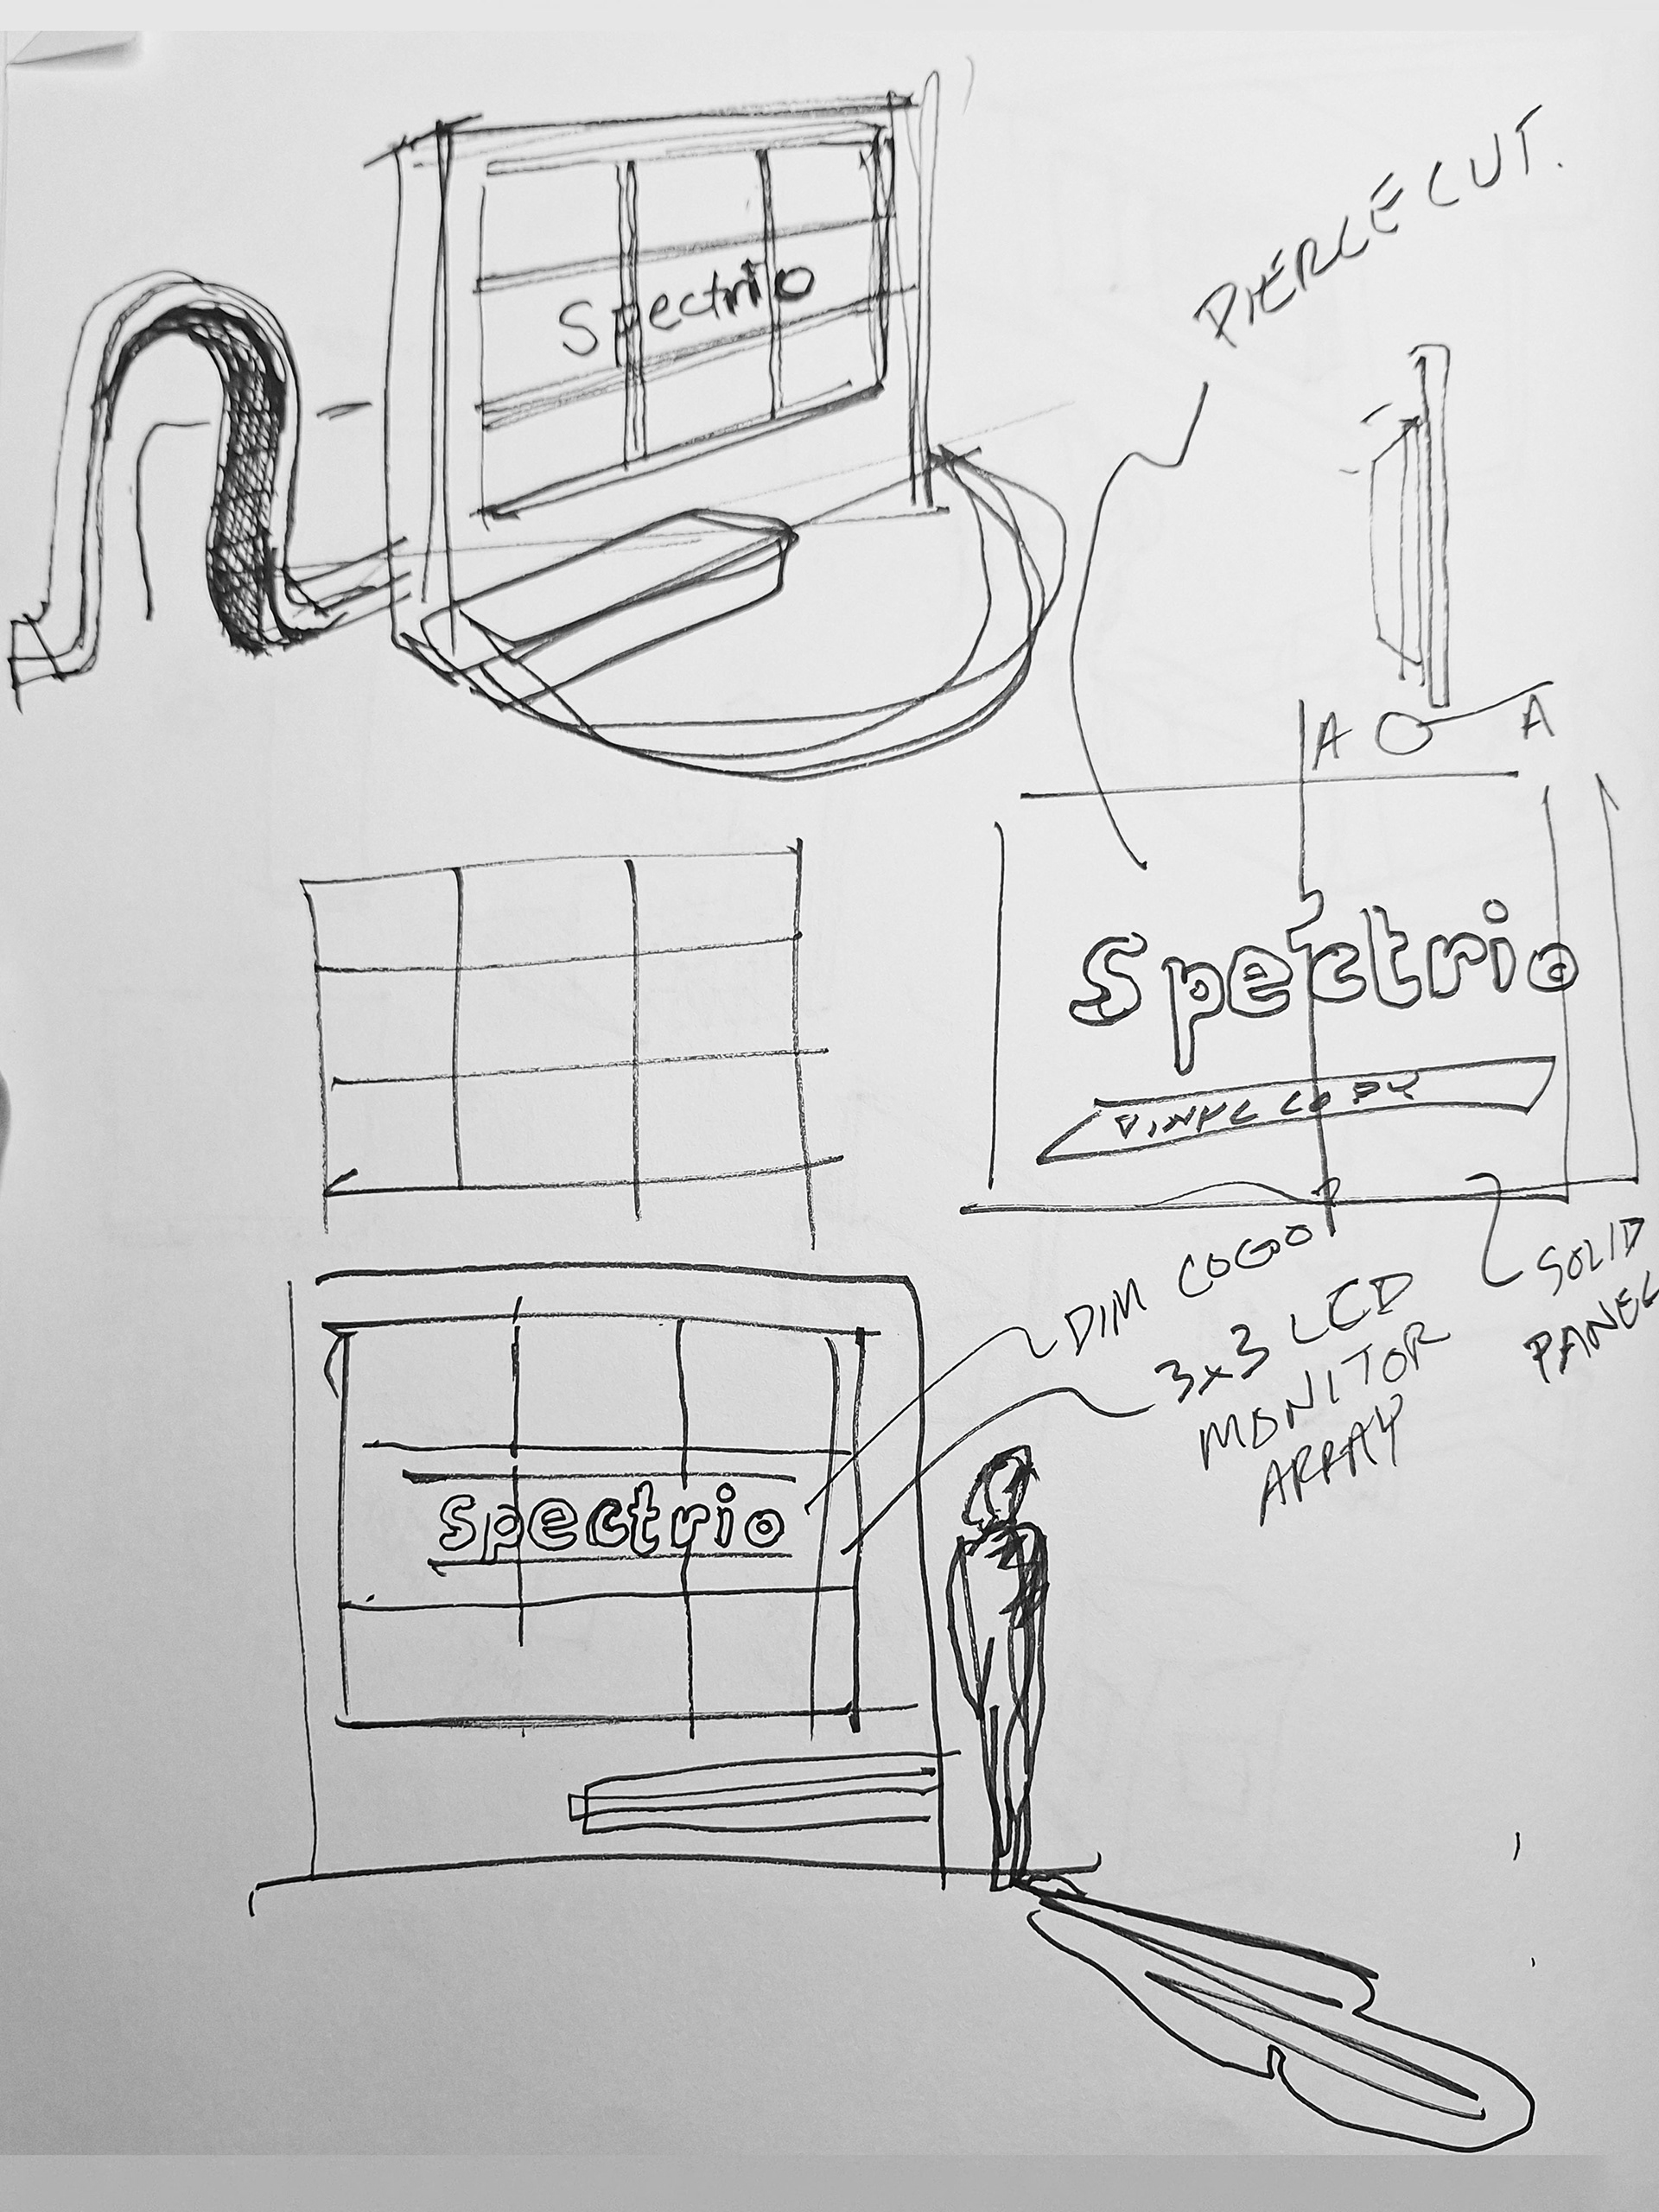 Spectrio
PIERCE CUT.
A A
Spectrio
VINYL COPY
SOLID
PANEL
DIM LOGO
3x3 LCD
MONITOR
ARRAY
Spectrio